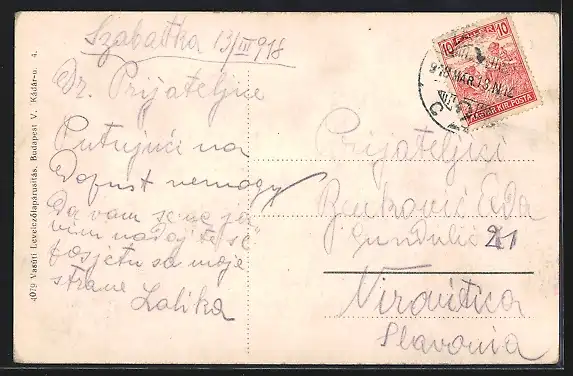 Szabatka 13/III 918
Dr. Prijateljice
Putujući na
Dopust nemogu
Da vam se ne ja
vim nadajte se
posjetu sa moje
strane Lalika
Prijateljici
Eda
Gundulić 21
Virovitica
Slavonia
10 10
918 MÁR 13
MAGYAR KIR. POSTA
4079 Vasúti Levelezőlapárusítás, Budapest V. Kádár-u. 4.